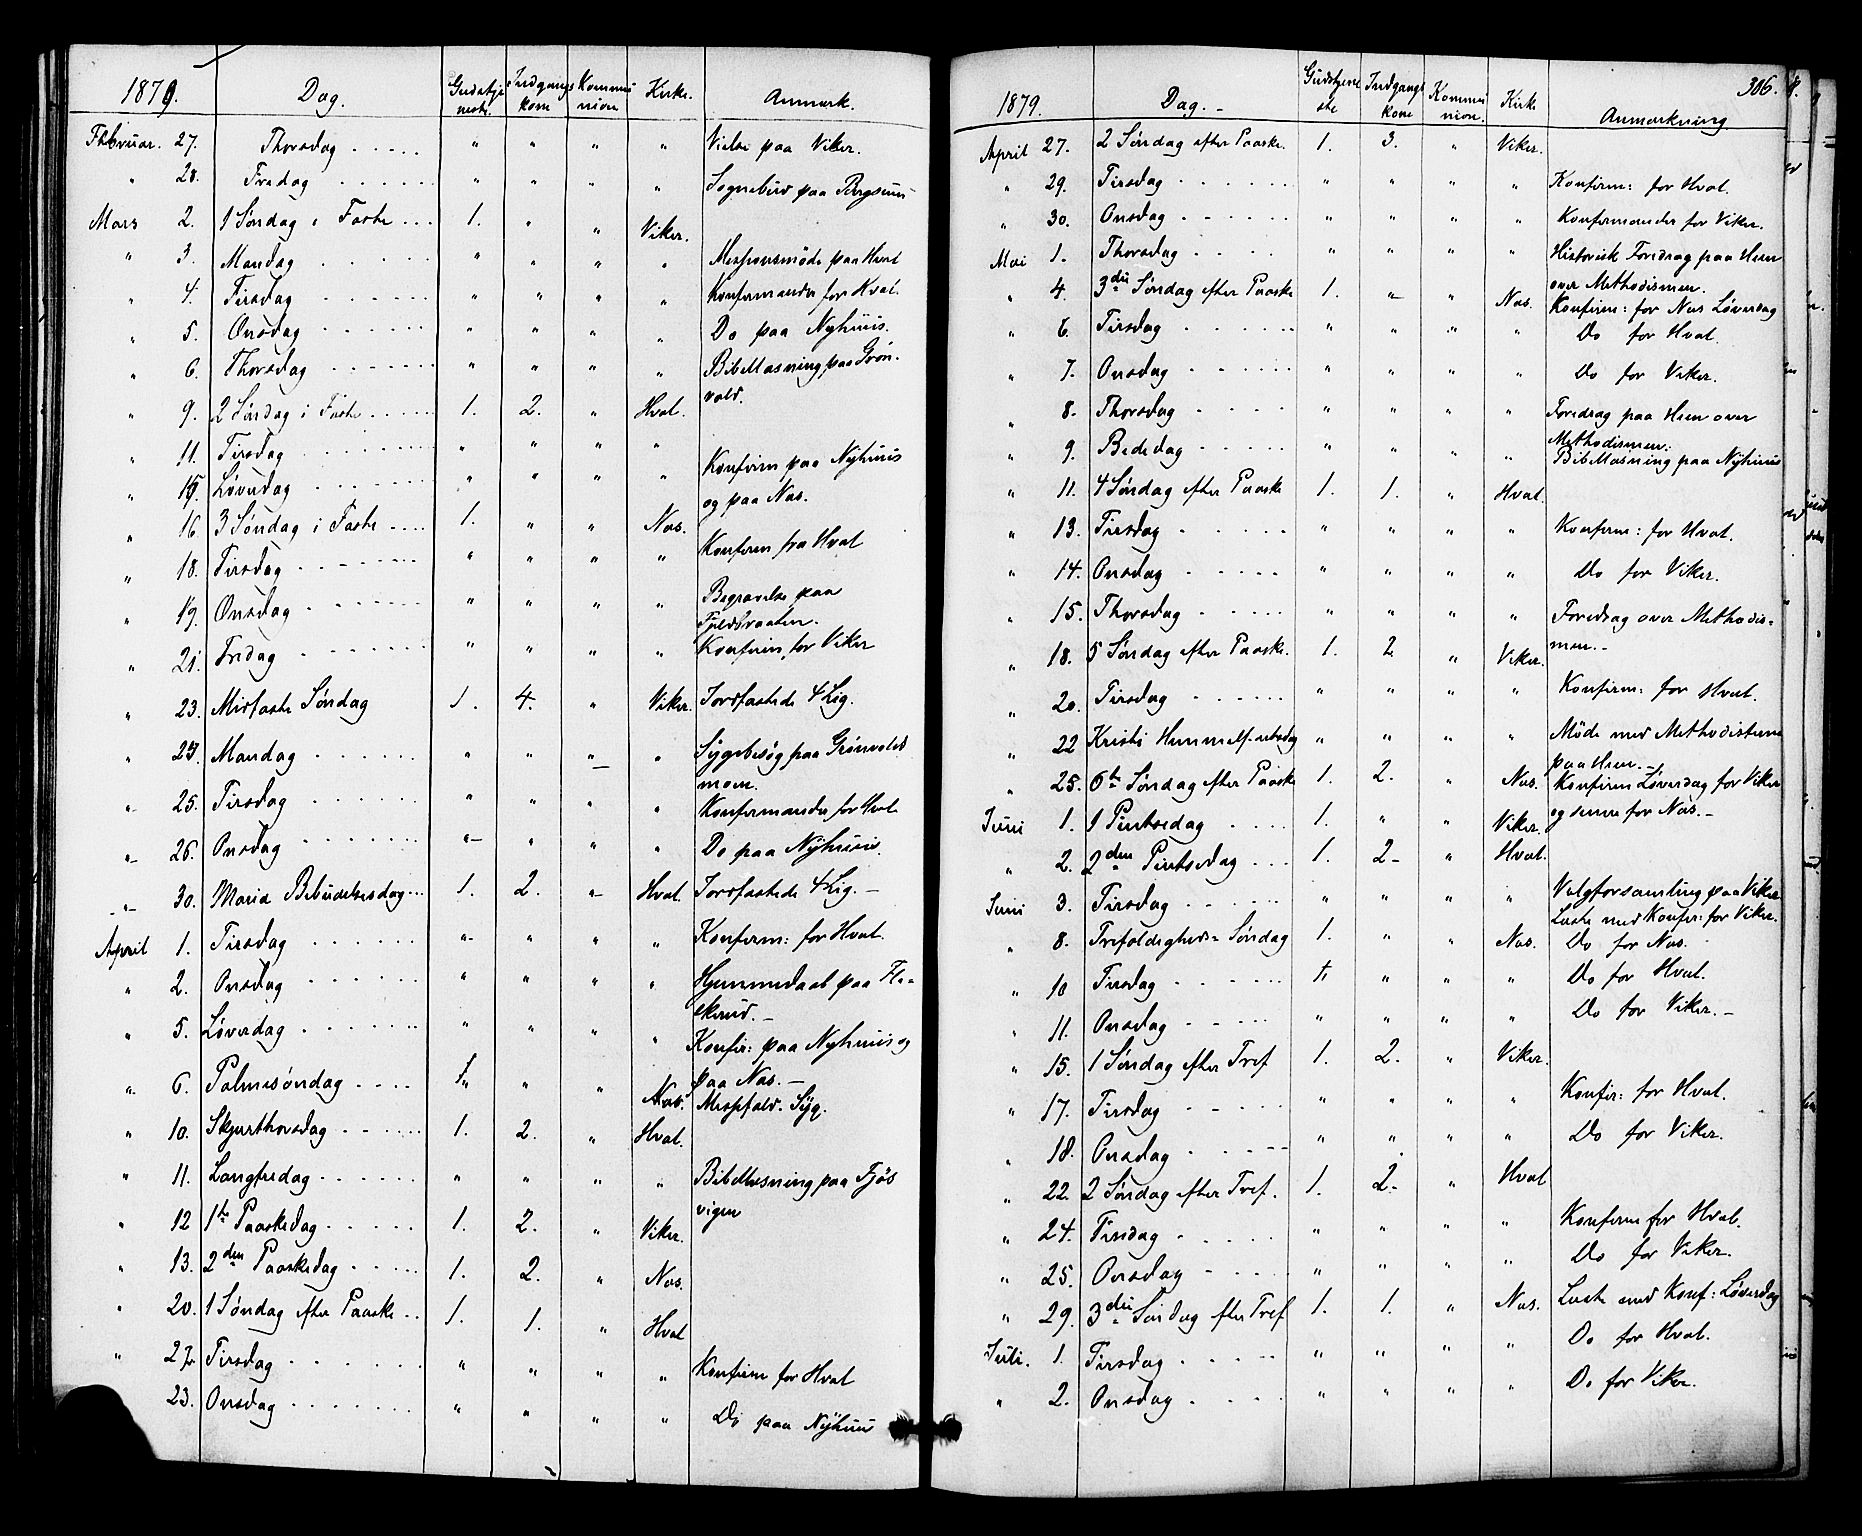 1879. Dag. Gudstjeneste. Indgangskone Kommunion Kirke. Anmærk.
Februar. 27. Thorsdag " " " " Vielse paa Viker.
" 28. Fredag " " " " Sognebud paa Bergsund
Mars 2. 1 Søndag i Faste 1. " " Viker.
" 3. Mandag " " " " Missionsmöde paa Hval
" 4. Tirsdag " " " " Konfirmander for Hval.
" 5. Onsdag " " " " Do paa Nyhuus.
" 6. Thorsdag " " " " Bibellæsning paa Grøn-
vold.
" 9. 2 Søndag i Faste 1. 2. " Hval.
" 11. Tirsdag " " " " Konfirm paa Nyhuus
" 15. Løverdag " " " " og paa Næs.
" 16. 3 Søndag i Faste 1. " " Næs.
" 18. Tirsdag " " " " Konfirm fra Hval
" 19. Onsdag " " " " Begravelse paa

" 21. Fredag " " " " Konfirm, for Viker
" 23. Midfaste Søndag 1. 4. " Viker. Jordfæstede 4 Lig.
" 24. Mandag " " " " Sygebesøg paa Grønvolds
moen.
" 25. Tirsdag " " " " Konfirmander for Hval
" 26. Onsdag " " " " Do paa Nyhuus.
" 30. Maria Bebudelsesdag 1. 2. " Hval. Jordfæstede 4 Lig. -
April 1. Tirsdag " " " " Konfirm: for Hval.
" 2. Onsdag " " " " Hjemmedaab paa Fla-
skerud. -
" 5. Løverdag " " " " Konfir: paa Nyhuus og
paa Næs. -
" 6. Palmesøndag " " " Næs. Messefald. Syg.
" 10. Skjærthorsdag 1. 2. " Hval.
" 11. Langfredag " " " " Bibellæsning paa Fjøs
vigen
" 12 1te Paaskedag 1. 2. " Viker.
" 13. 2den Paaskedag 1. 2. " Næs.
" 20. 1 Søndag efter Paaske 1. 1. " Hval
" 22 Tirsdag " " " " Konfirm for Hval
23. Onsdag " " " " Do paa Nyhuus
306.
1879. Dag. - Gudstjeneste Indgangskone Kommunion. Kirke Anmærkning
April 27. 2 Søndag efter Paaske. 1. 3. " Viker.
" 29. Tirsdag " " " " Konfirm: for Hval.
" 30. Onsdag " " " " Konfirmander for Viker.
Mai 1. Thorsdag " " " " Historisk Foredrag paa Hem
over Methodismen.
" 4. 3die Søndag efter Paaske 1. " " Næs. Konfirm: for Næs Løverdag
" 6. Tirsdag " " " " Do for Hval.
" 7. Onsdag " " " " Do for Viker.
" 8. Thorsdag " " " " Foredrag paa Hem over
Methodismen.
" 9. Bededag " " " " Bibellæsning paa Nyhuus
" 11. 4 Søndag efter Paaske 1. 1. " Hval.
" 13. Tirsdag " " " " Konfirm: for Hval.
" 14. Onsdag " " " " Do for Viker.
" 15. Thorsdag " " " " Foredrag over Methodis-
men. -
" 18. 5 Søndag efter Paaske. 1. 2. " Viker.
" 20. Tirsdag " " " " Konfirm: for Hval.
" 22 Kristi Himmelfartsdag " " " " Möde med Methodisterne
paa Hem. -
" 25. 6te Søndag efter Paaske 1. 2. " Næs. Konfirm Løverdag for Viker
og senere for Næs. -
Juni 1. 1 Pintsedag 1. " " Viker.
" 2. 2den Pintsedag 1. 2- " Hval.
Juni 3. Tirsdag " " " " Valgforsamling paa Viker
Læste med Konfir: for Viker.
" 8. Trefoldigheds- Søndag 1. " " Næs. Do for Næs.
" 10 Tirsdag " " " " Do for Hval.
" 11. Onsdag " " " " Do for Viker. -
" 15. 1 Søndag efter Tref 1. 2. " Viker.
" 17. Tirsdag " " " " Konfir: for Hval.
" 18. Onsdag " " " " Do for Viker.
" 22. 2 Søndag efter Tref. 1. 2- " Hval
" 24. Tirsdag " " " " Konfirm for Hval.
" 25. Onsdag " " " " Do for Viker.
" 29. 3die Søndag efter Tref 1. 1. " Næs. Læste med Konf: Løverdag
Juli. 1. Tirsdag " " " " Do for Hval.
" 2. Onsdag " " " " Do for Viker.